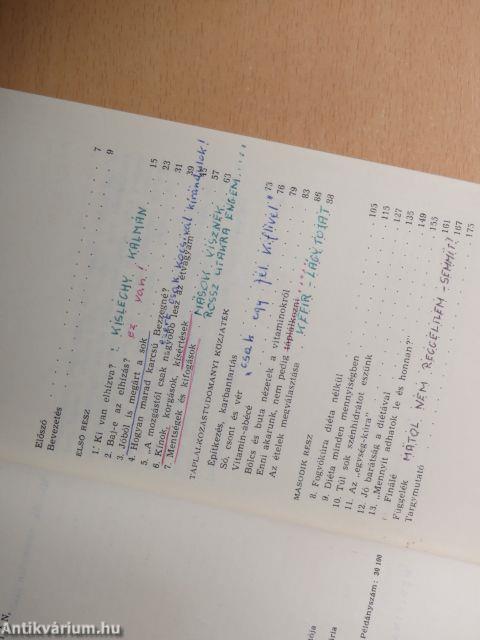 Előszó . . . 7
Bevezetés . . . 9
ELSŐ RESZ
1. Ki van elhízva? KISLÉGHY KÁLMÁN
2. Baj-e az elhízás? ez van!
3. Jobb is megárt a sok . . . 15
4. Hogyan marad karcsú Beszegné? . . . 23
5. „A mozgástól csak nagyobb lesz az étvágyam" . . . 31
csak kocsival kirándulok!
6. Kínok, kongások, kísértések . . . 39
7. Mentségek és kifogások
MÁSOK VISZNEK
ROSSZ UTAKRA ENGEM.....
TÁPLÁLKOZÁSTUDOMÁNYI KÖZJÁTÉK
Építkezés, karbantartás . . . 57
Só, csont és vér . . . 63
Vitamin-ábécé
Bölcs és buta nézetek a vitaminokról . . . 76
„csak egy fél kiflivel" 73
Enni akarunk, nem pedig táplálkozni . . . 79
Az ételek megválasztása . . . 83
KEFIR-LÁGYTOJÁT
MÁSODIK RESZ
8. Fogyókúra diéta nélkül . . . 88
9. Diéta minden mennyiségben
10. Túl sok szénhidrátot eszünk . . . 105
11. Az „egység-kúra" . . . 115
12. Jó barátság a diétával . . . 127
13. „Mennyit adhatok le és honnan?" . . . 135
Finálé . . . 149
Függelék . . . 153
MÁTÓL NEM REGGELIZEM -SEMMIT? 161
Tárgymutató . . . 167
175
Példányszám: 30 100
Antikvárium.hu
Antikvárium.hu